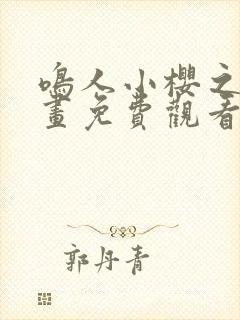 鳴人小櫻之
畫免費觀看
郭丹青